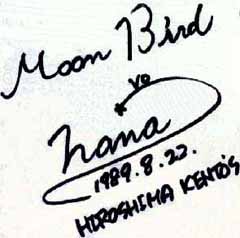 Moon Bird
vo
hana
1989.8.22.
HIROSHIMA KENTO'S